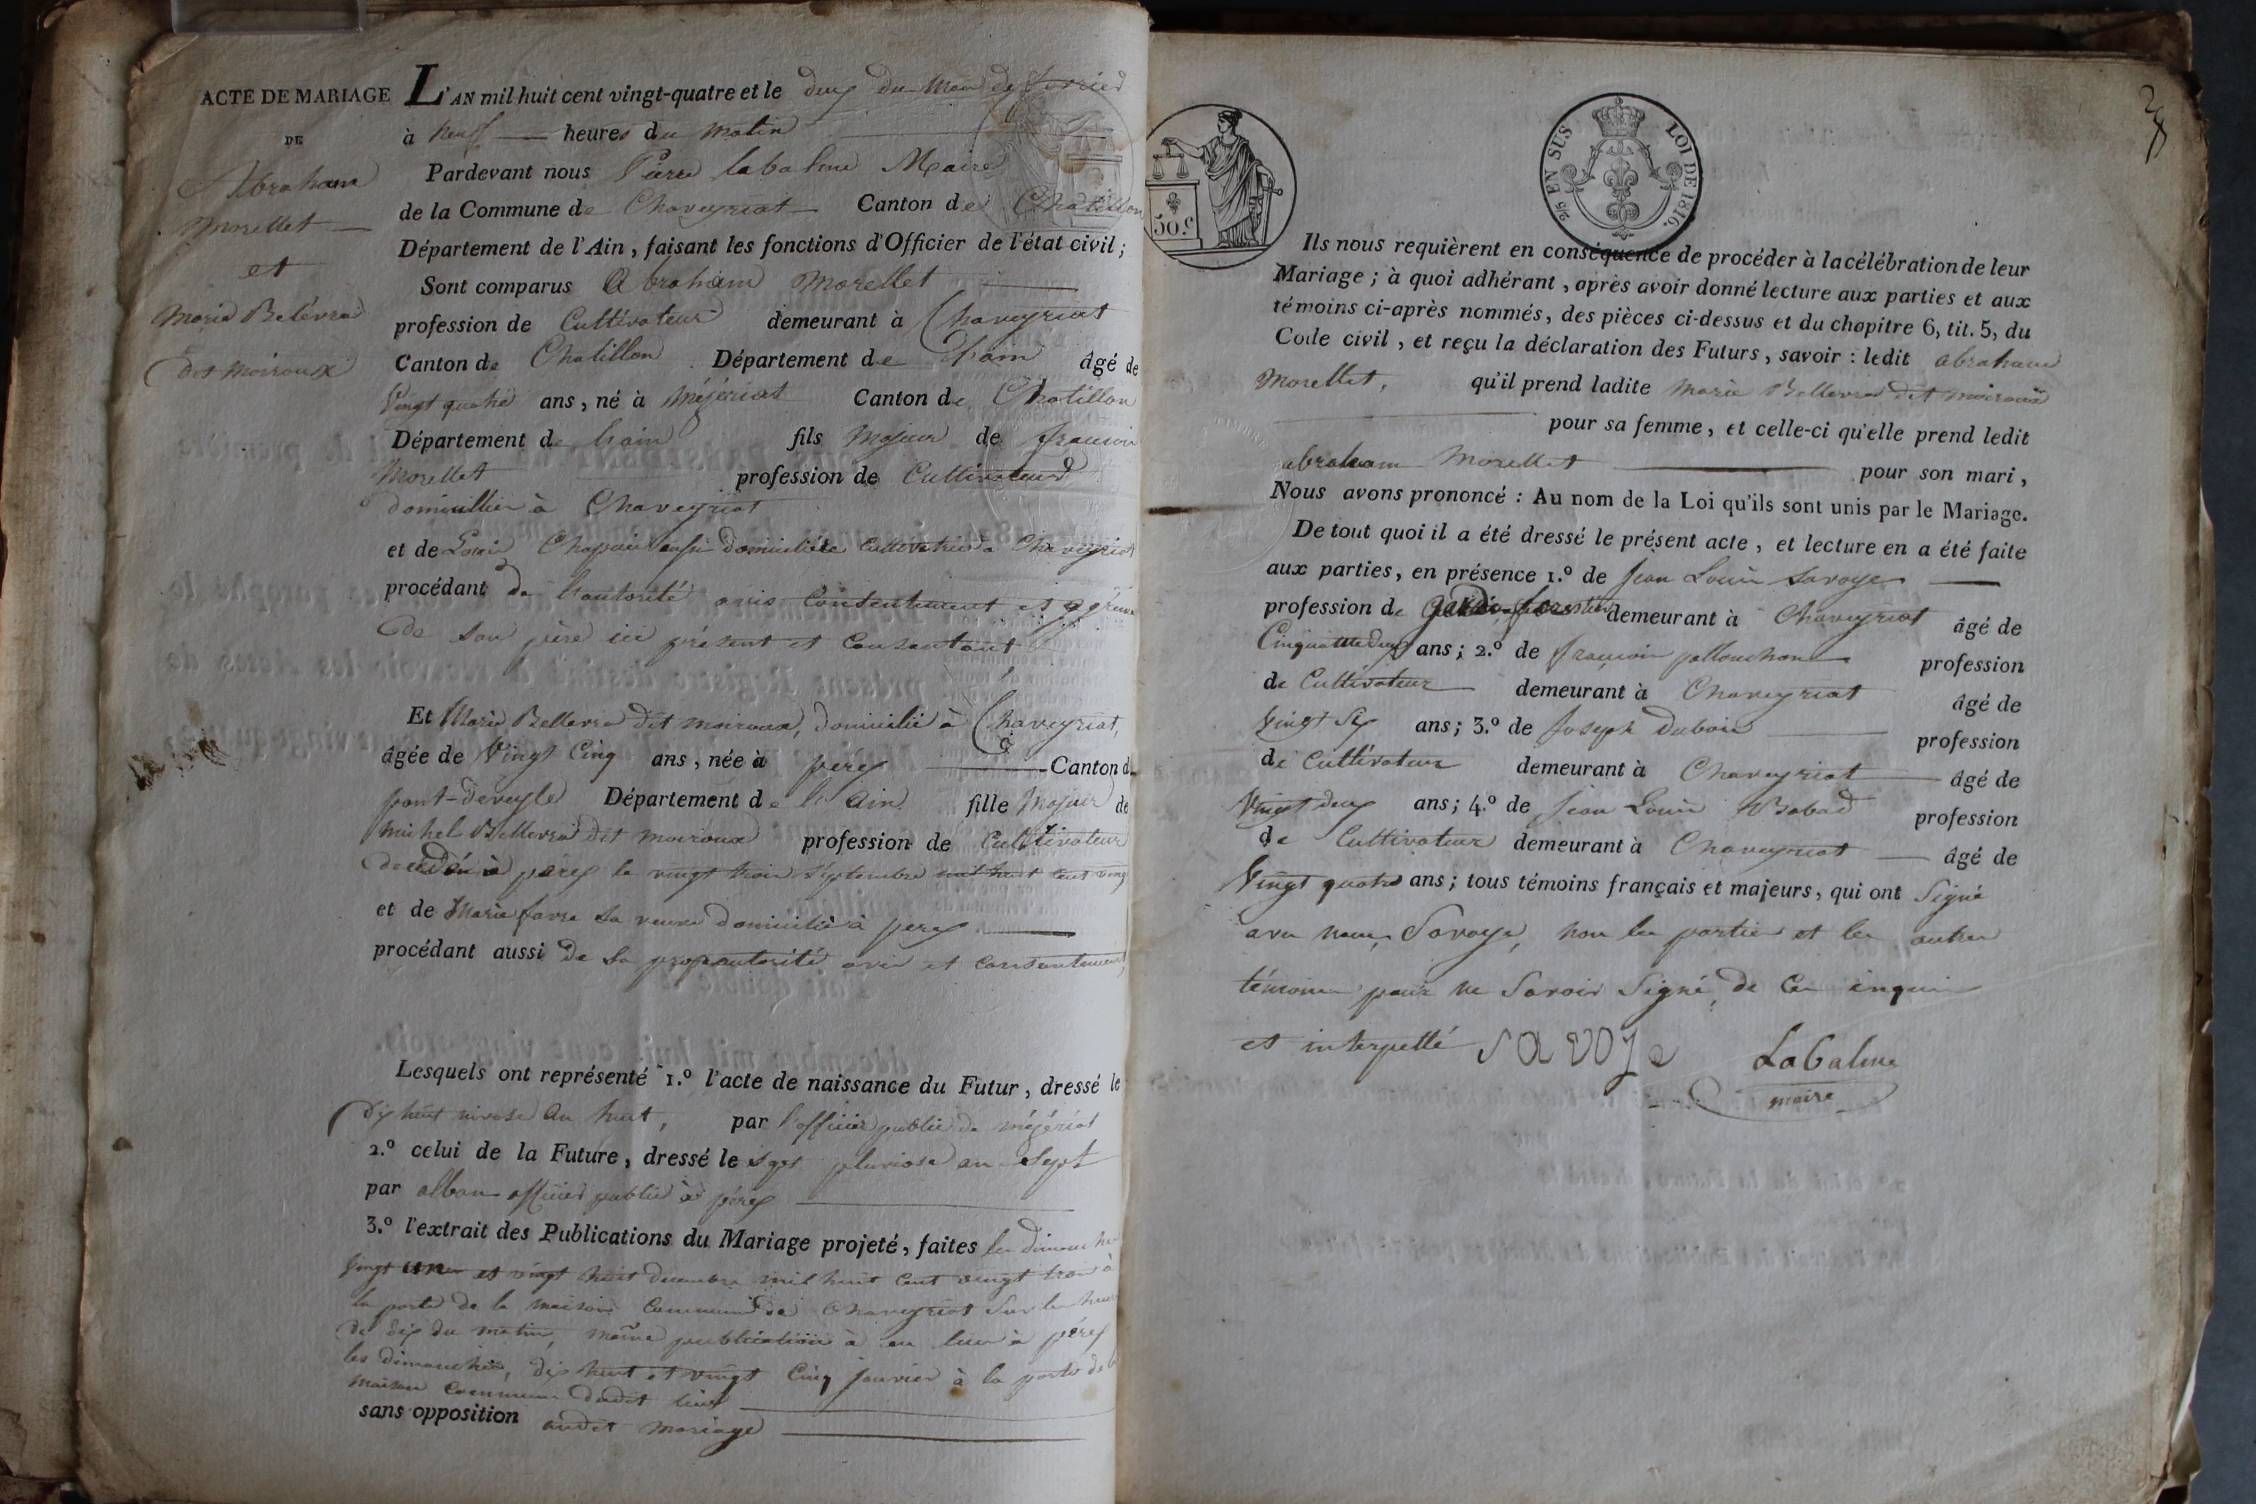 ACTE DE MARIAGE
DE
Abraham
Morellet
et
Marie Belévra
dit moiroux
L'AN mil huit cent vingt-quatre et le deux du Mois de fevrier
à neuf heures du matin
Pardevant nous Pierre labalme Maire
de la Commune de Chaveyriat Canton de Chatillon
Département de l'Ain, faisant les fonctions d'Officier de l'état civil;
Sont comparus Abraham Morellet
profession de Cultivateur demeurant à Chaveyriat
Canton de Chatillon Département de l'ain âgé de
Vingt quatre ans, né à Méjériat Canton de Chatillon
Département de l'ain fils Majeur de francois
Morellet profession de Cultivateur
domicillier à Chaveyriat
et de Louise Chapuis aussi domiciliée Cultivatrice à Chaveyriat
procédant de l'autorité avis consentement et agrément
de son père ici présent et Consentant
Et Marie Bellevra dit moiroux, domicilié à Chaveyriat,
âgée de Vingt Cinq ans, née à pérex Canton de
pont-deveyle Département de l'ain fille Majeur de
michel Bellevra dit moiroux profession de Cultivateur
décédé à pérex le vingt trois septembre mil huit cent vingt
et de Marie favre sa veuve domicilié à perex
procédant aussi de sa propre autorité avis et consentement
Lesquels ont représenté 1.º l'acte de naissance du Futur, dressé le
dix huit nivose an huit, par l'officier public de méjériat
2.º celui de la Future, dressé le sept pluviose an sept
par alban officier public à pérex
3.º l'extrait des Publications du Mariage projeté, faites les dimanches
vingt un et vingt huit decembre mil huit cent vingt trois à
la porte de la maison commune de Chaveyriat sur les heures
de dix du matin, même publication à eu lieu à pérex
les dimanches, dix huit et vingt Cinq janvier à la porte de la
maison commune dudit lieu
sans opposition audit mariage
50.c
EN SUS
LOI DE 1816.
Ils nous requièrent en conséquence de procéder à la célébration de leur
Mariage; à quoi adhérant, après avoir donné lecture aux parties et aux
témoins ci-après nommés, des pièces ci-dessus et du chapitre 6, tit. 5, du
Code civil, et reçu la déclaration des Futurs, savoir: ledit abraham
Morellet, qu'il prend ladite Marie Bellevra dit moiroux
pour sa femme, et celle-ci qu'elle prend ledit
abraham Morellet pour son mari,
Nous avons prononcé: Au nom de la Loi qu'ils sont unis par le Mariage.
De tout quoi il a été dressé le présent acte, et lecture en a été faite
aux parties, en présence 1.º de Jean Louis Savoye
profession de garde forestier demeurant à Chaveyriat âgé de
Cinquante deux ans; 2.º de francois pallouchon profession
de Cultivateur demeurant à Chaveyriat âgé de
Vingt Six ans; 3.º de Joseph Dubois profession
de Cultivateur demeurant à Chaveyriat âgé de
Vingt deux ans; 4.º de Jean Louis Bobad profession
de Cultivateur demeurant à Chaveyriat âgé de
Vingt quatre ans; tous témoins français et majeurs, qui ont Signé
avec nous, Savoye, non les parties et les autres
témoins pour ne Savoir Signé, de ce enquis
et interpellé Savoye Labalme
maire